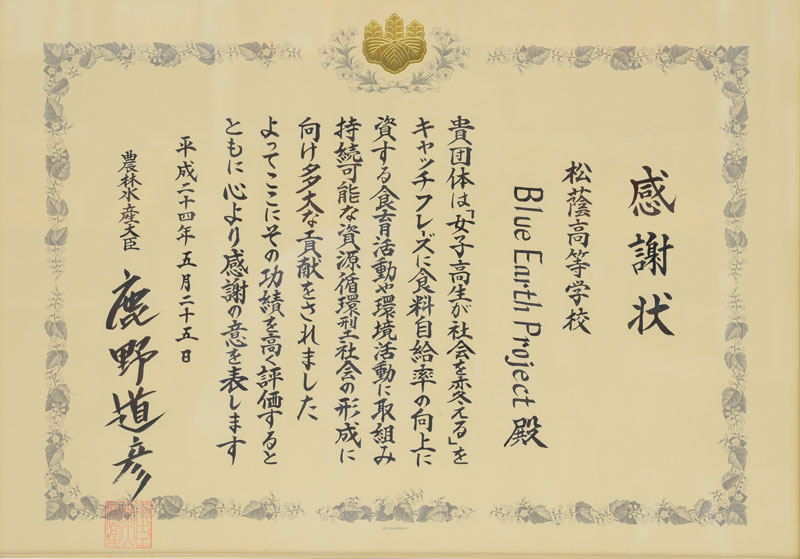 感謝状
松蔭高等学校
Blue Earth Project 殿
貴団体は「女子高生が社会を変える」を
キャッチフレーズに食料自給率の向上に
資する食育活動や環境活動に取組み
持続可能な資源循環型社会の形成に
向け多大な貢献をされました
よってここにその功績を高く評価すると
ともに心より感謝の意を表します
平成二十四年五月二十五日
農林水産大臣
鹿野道彦